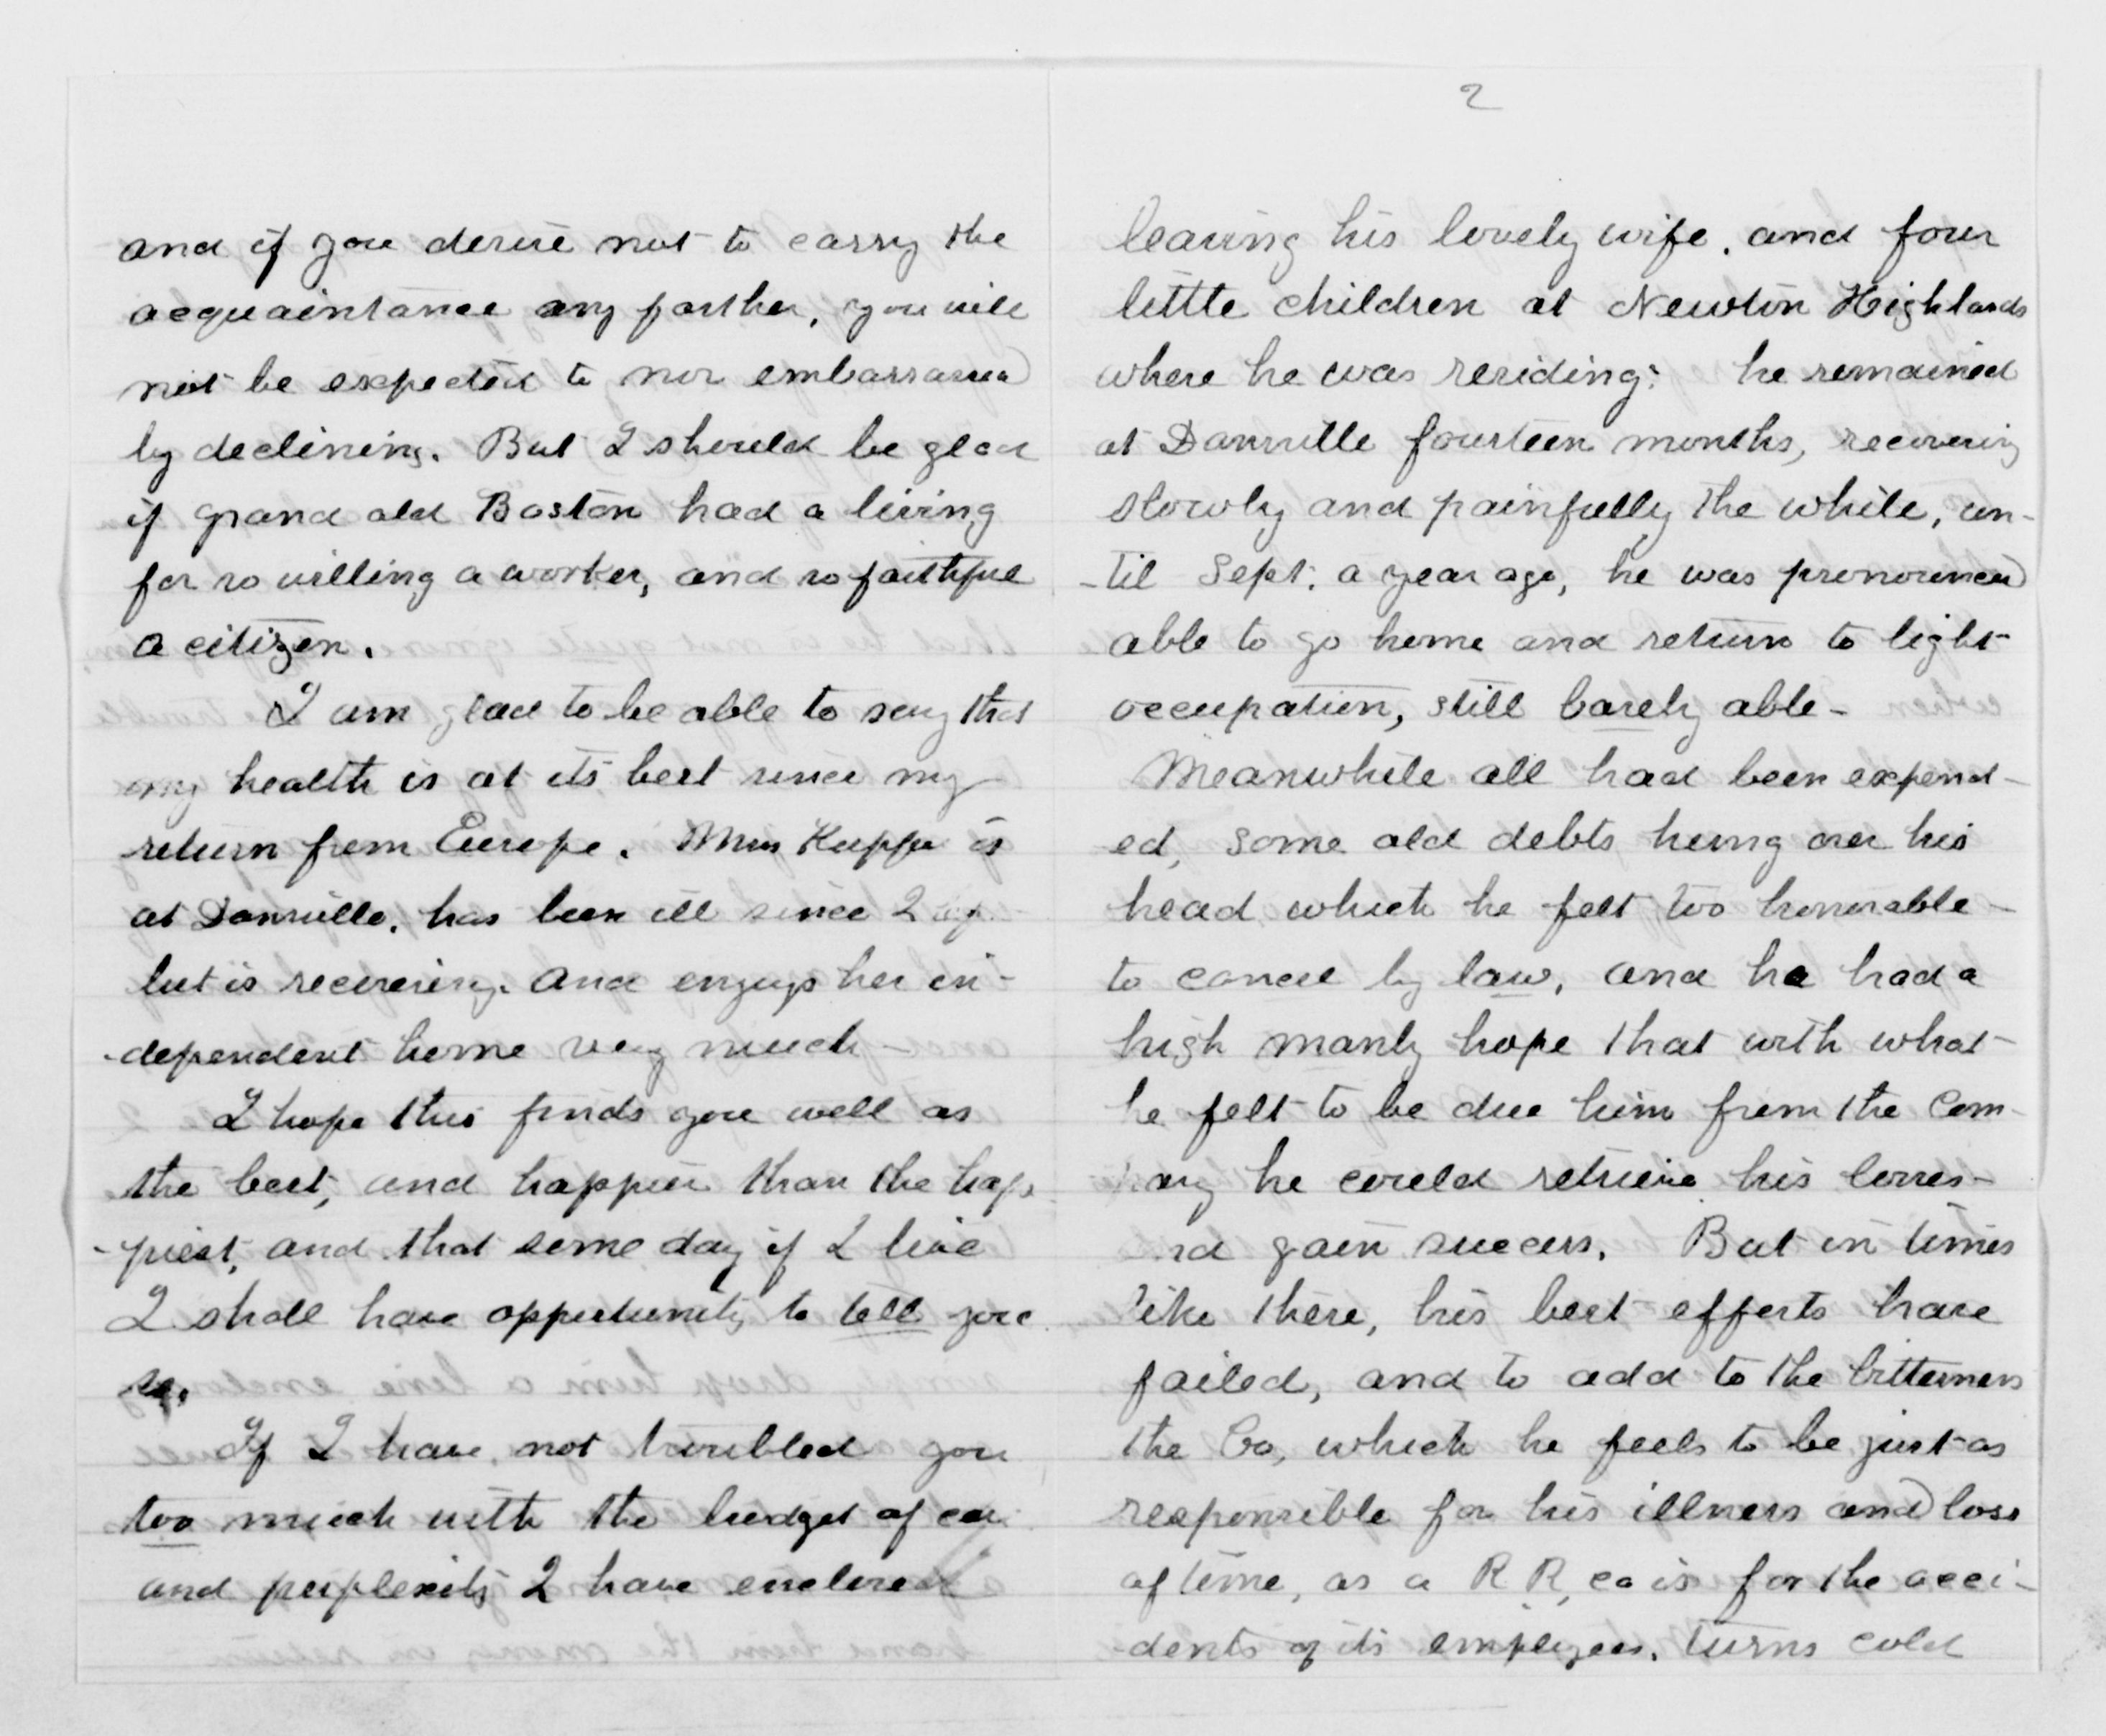 and if you desire not to carry the
acquaintance any farther, you will
not be expected to nor embarrassed
by declining. But I should be glad
if grand old Boston had a living
for so willing a worker, and so faithful
a citizen.
I am glad to be able to say that
my health is at its best since my
return from Europe. Miss Kupfer is
at Dansville, has been ill since I
but is recovering. and enjoys her in-
-dependent home very much -
I hope this finds you well as
the best, and happier than the hap-
-piest, and that some day if I live
I shall have opportunity to tell you
so.
If I have not troubled you
too much with the budget of
and perplexity I have enclosed
2
leaving his lovely wife, and four
little children at Newton Highlands
where he was residing; he remained
at Dansville fourteen months, recovering
slowly and painfully the while, un-
-til Sept. a year ago, he was pronounced
able to go home and return to light
occupation, still barely able -
Meanwhile all had been expend-
ed, some old debts hung over his
head which he felt too honorable -
to cancel by law, and he had a
high manly hope that with what
he felt to be due him from the Com-
pany he could retrieve his losses -
and gain success. But in times
like these, his best efforts have
failed, and to add to the bitterness
the Co, which he feels to be just as
responsible for his illness and loss
of time, as a R R, co is for the acci-
-dents of its employees, turns cold